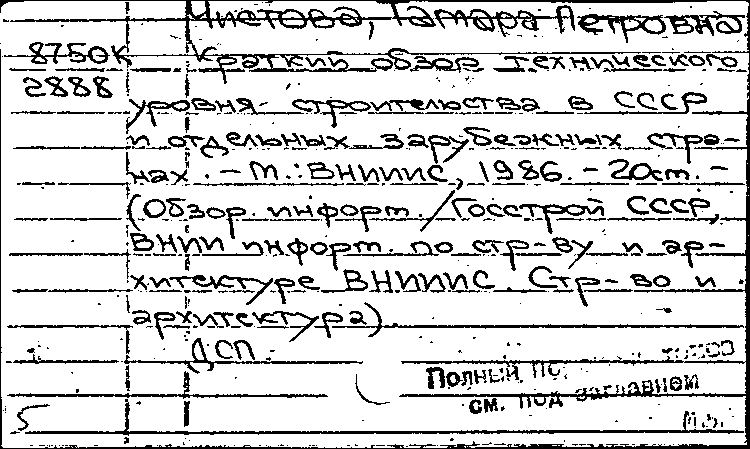 Чистова, Тамара Петровна
8750к Краткий обзор технического
2888
уровня строительства в СССР
и отдельных зарубежных стра-
нах. – М.: ВНИИИС, 1986. – 20ст. –
(Обзор. информ. / Госстрой СССР,
ВНИИ информ. по стр-ву и ар-
хитектуре ВНИИИС. Стр-во и
архитектура).
ДСП.
Полный
см. под заглавием
5